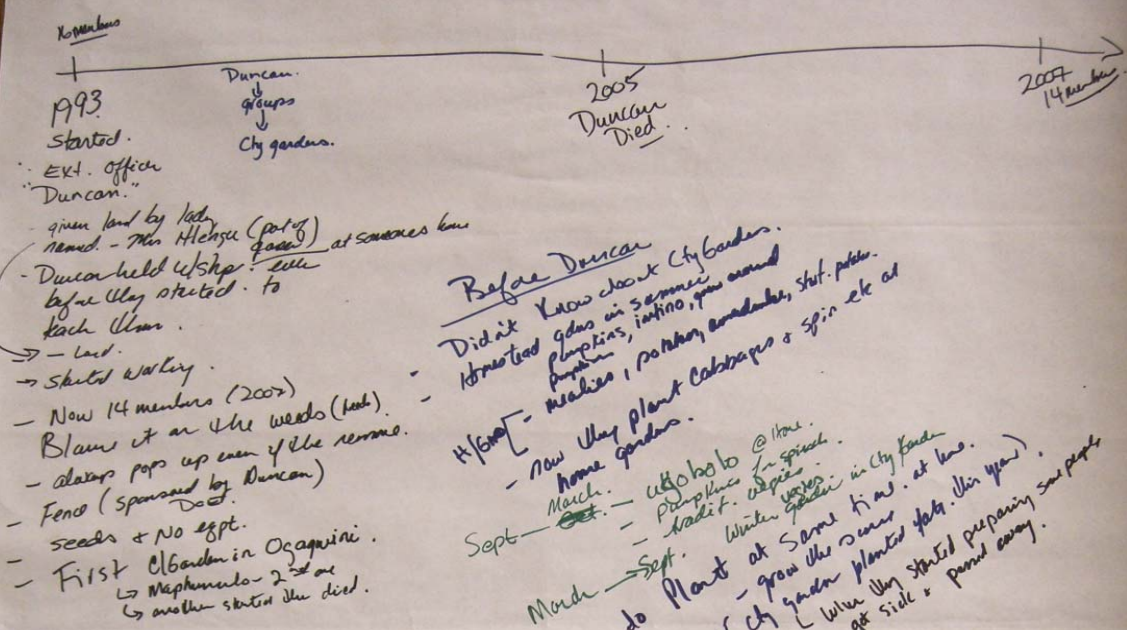 members
1993
Started.
Ext. Officer
"Duncan."
given land by lady
named - Mrs Hlengu (part of
at someones home
- Duncan held w/shp. either
before they started. to
teach them.
→ - Land.
→ Started working.
- Now 14 members (2007)
Blame it on the weeds
- always pops up even if the remove.
- Fence (sponsored by Duncan)
Dost.
- seeds & No eqpt.
- First C/Garden in Ogagwini.
↳ Maphumulo - 2nd one
↳ another started the died.
Duncan.
↓
groups
↓
Cty gardens.
2005
Duncan
Died.
2007
14 members
Before Duncan
- Didn't know about Cty Gardens.
- Homestead gdns in summer
pumpkins, imfino, grow around
pumpkins
H/Gdns [ - mealies, potatoes, amadumbe, swt. potatoes.
- now they plant cabbages & spin etc at
home gardens.
March.
Sept — — ugobolo @ Home.
- pumpkins for spinach.
- tradit. vegies.
March → Sept. Winter veges
garden in Cty Garden
do Plant at same time. at home.
- grow the same
Cty garden planted (this year).
↳ When they started preparing some people
got sick & passed away.